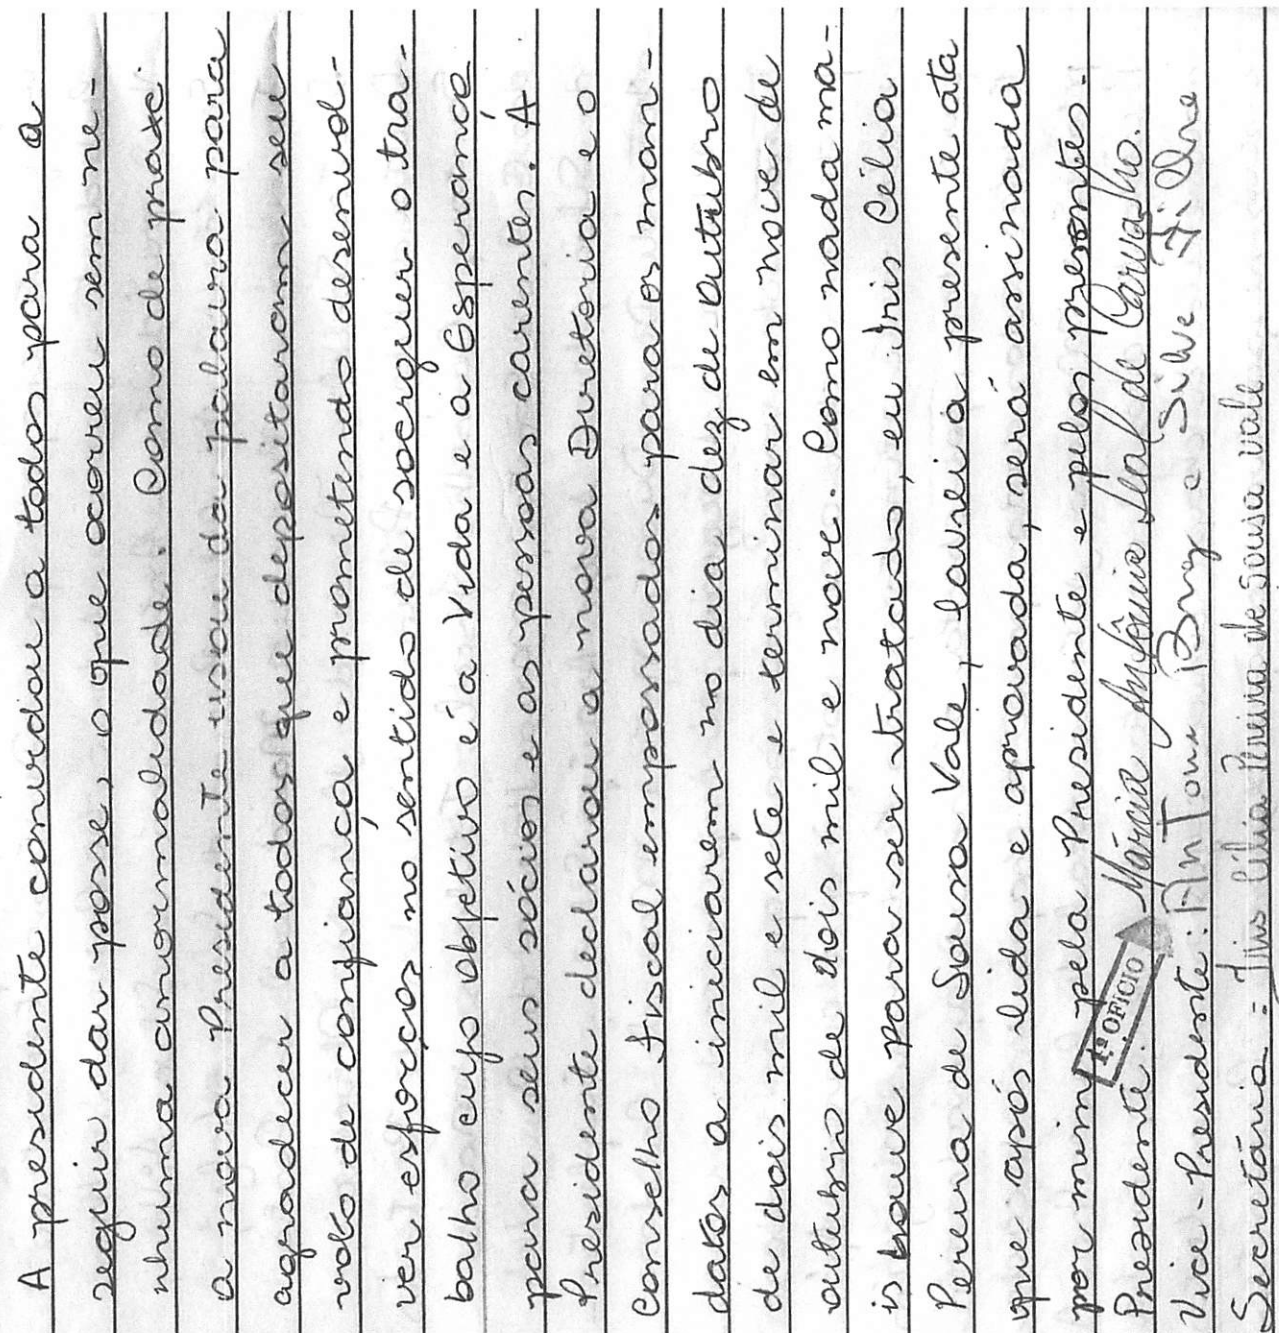 A presidente convidou a todos para a
seguir dar posse, o que ocorreu sem ne-
nhuma anormalidade. Como de praxe
a nova Presidente usou da palavra para
agradecer a todos que depositaram seu
voto de confiança e prometendo desenvol-
ver esforços no sentido de socorguer o tra-
balho cujo objetivo é a Vida e a Esperança
para seus sócios e as pessoas carentes. A
Presidente declarou a nova Diretoria e o
Conselho Fiscal empossados para os man-
datos a iniciarem no dia dez de outubro
de dois mil e sete e terminar em nove de
outubro de dois mil e nove. Como nada ma-
is houve para ser tratado, eu Iris Célia
Pereira de Sousa Vale, lavrei a presente ata
que após lida e aprovada, será assinada
por mim pela Presidente e pelos presentes.
Presidente: 1º OFÍCIO Márcia Antônia Leal de Carvalho.
Vice-Presidente: Antonio Borges Silva Filho
Secretária = Iris Célia Pereira de Sousa Vale